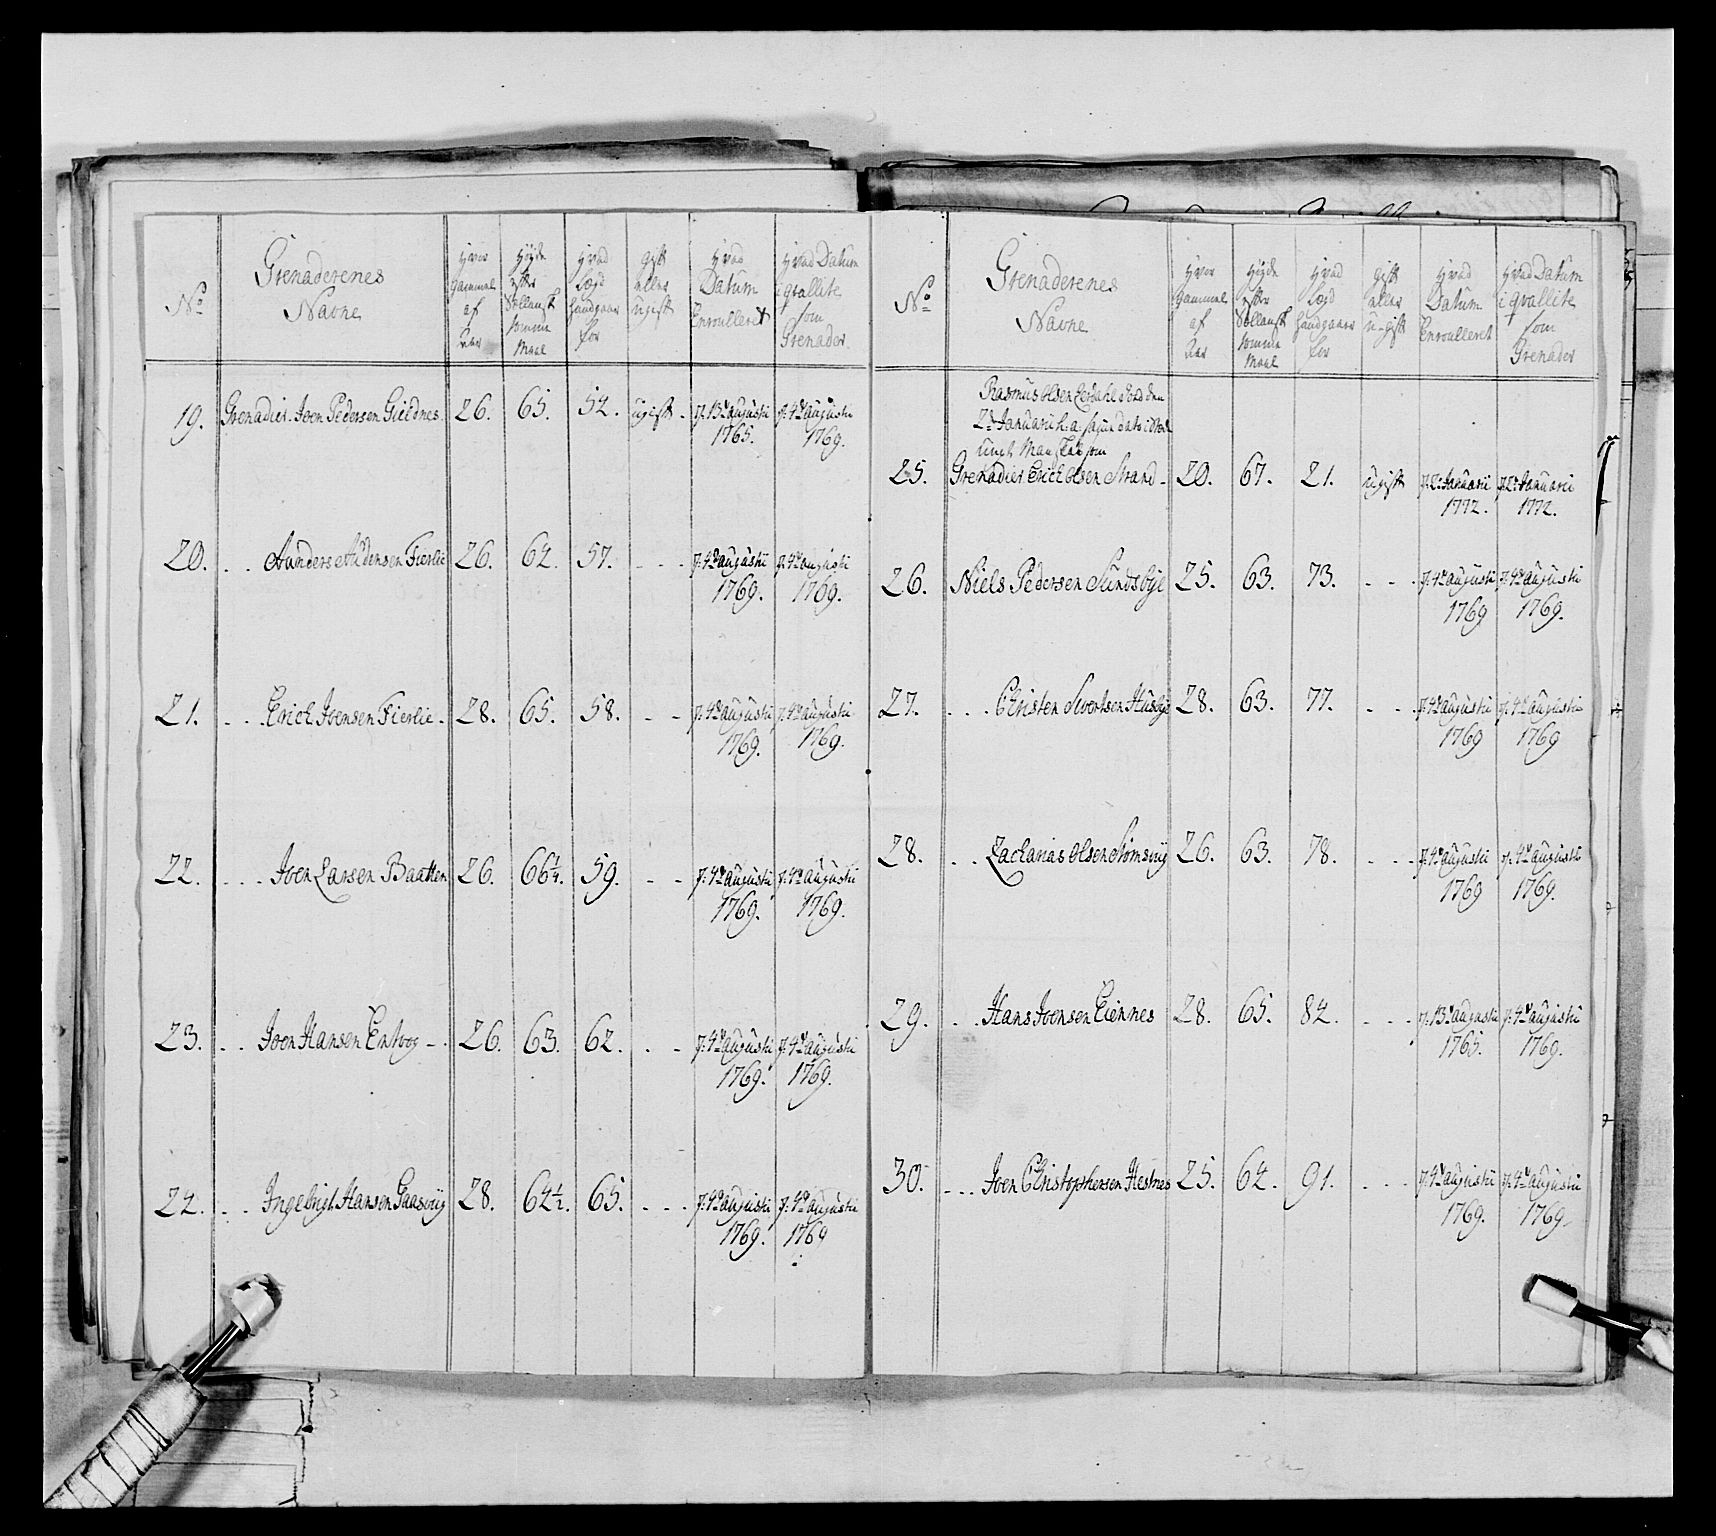 No
Grenaderenes
Navne
Hvor
gammel
af
Aar
Høyde
efter
Sollansk
tomme
Maal
Hvad
Legd
handgaaer
for
gift
eller
ugift
Hvad
Datum
Enroulleret
Hvad Datum
i qvallite
som
Grenader
19. Grenadier Joen Pedersen Gieldnes 26. 65. 54. ugift d. 13de augustii 1765. d. 4de augustii 1769.
20. Anders Andersen Fierlie 26. 64. 57. - - - d. 4de augustii 1769. d. 4de augustii 1769.
21. Erich Joensen Fierlie 28. 65. 58. - - d. 4de augustii 1769. d. 4de augustii 1769.
22. Joen Larsen Baatten 26. 66¼. 59. - - d. 4de augustii 1769. d. 4de augustii 1769.
23. Joen Hansen Entvog 26. 63. 62. - - d. 4de augustii 1769. d. 4de augustii 1769.
24. Ingebrigt Hansen Gaasvig 28. 64½. 65. - - - d. 4de augustii 1769. d. 4de augustii 1769
No
Grenaderenes
Navne
Hvor
gammel
af
Aar
Høyde
efter
Sollansk
tomme
Maal
Hvad
Legd
handgaaer
for
gift
eller
ugift
Hvad
Datum
Enroulleret
Hvad Datum
i qvallite
som
Grenader
Rasmus Olsen død den
2de Januarii h. a.
25. Grenadier Erich Olsen Strand 20. 67. 21. ugift d. 2de Januarii 1772. d. 2de Januarii 1772.
26. Niels Pedersen Sundsbye 25. 63. 73. - - - d. 4de augustii 1769 d. 4de augustii 1769.
27. Christen Sivertsen Husbye 28. 63. 77. - - - d. 4de augustii 1769 d. 4de augustii 1769
28. Zacharias Olsen Strømsvig 26. 63. 78. - - - d. 4de augustii 1769 d. 4de augustii 1769.
29. Hans Joensen Eiennes 28. 65. 84. - - - d. 13de augustii 1765. d. 4de augustii 1769.
30. Joen Christophersen Hestnes 25. 64. 91. - - - d. 4de augustii 1769. d. 4de augustii 1769